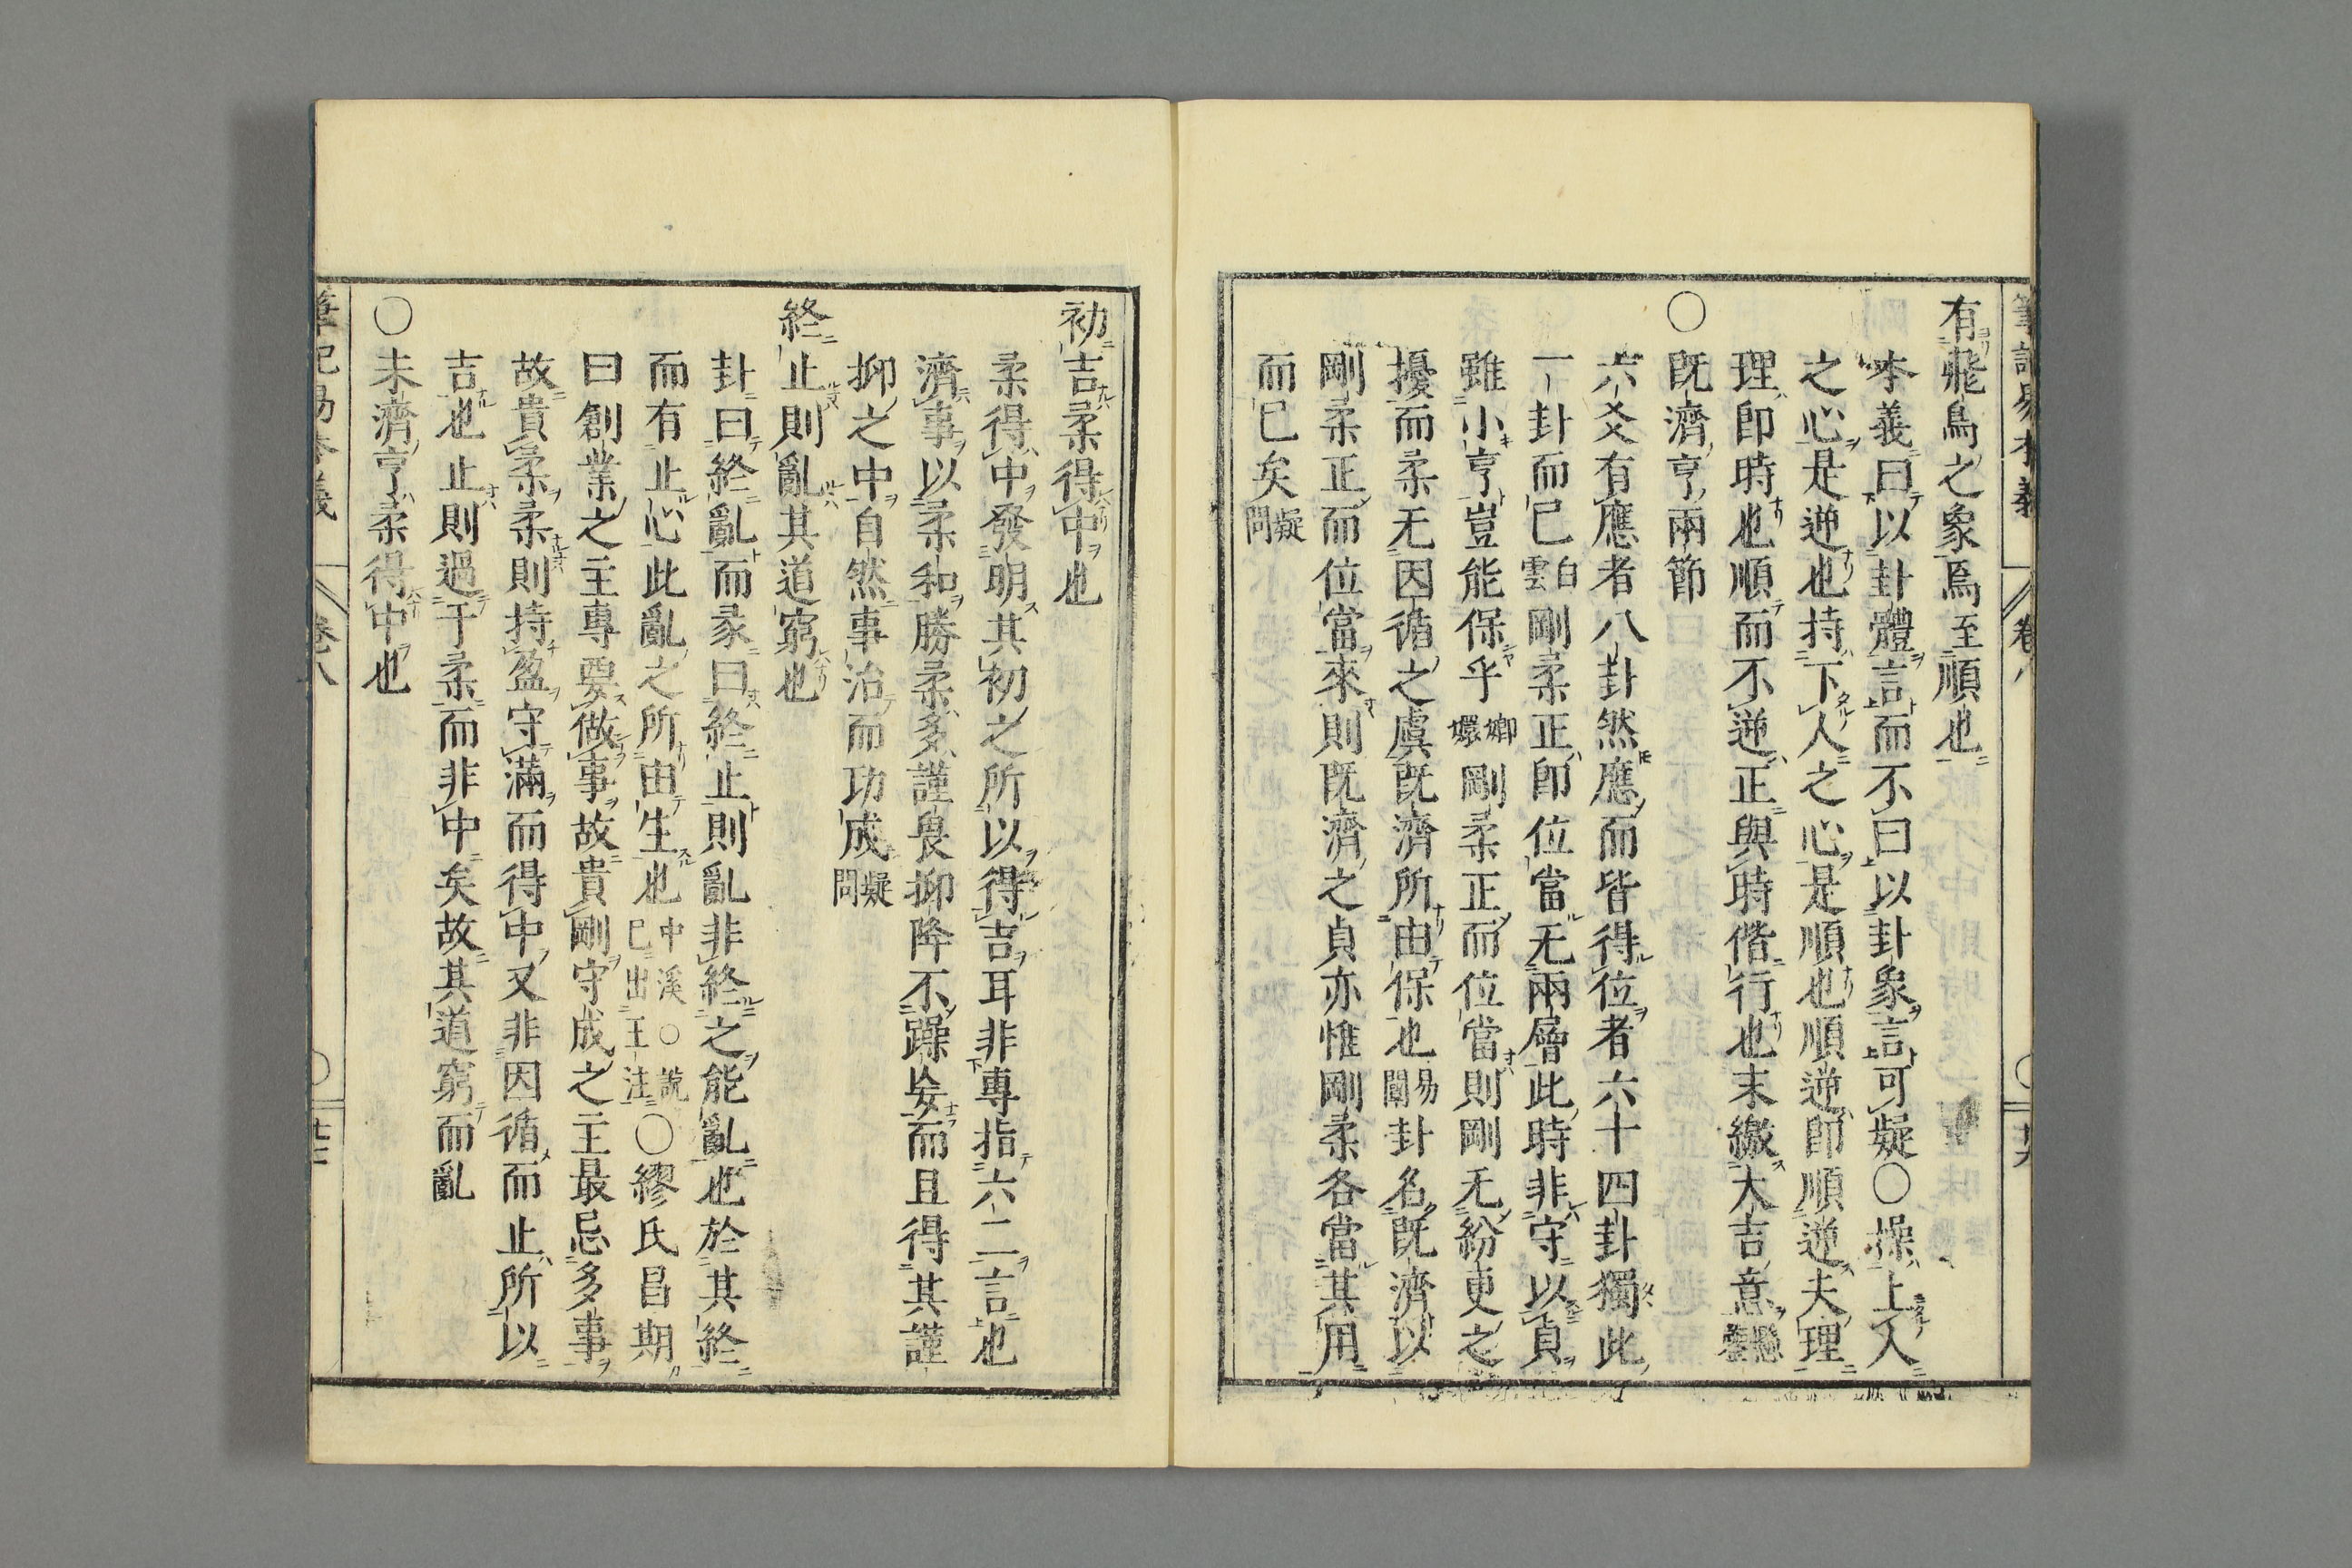 有飛鳥之象焉至順也
本義曰以卦體言而不曰以卦象言可疑○操上人
之心是逆也持下人之心是順也順逆卽順逆夫理
理卽時也順而不逆正與時偕行也末繳大吉意
○旣濟亨兩節
六爻有應者八卦然應而皆得位者六十四卦獨此
一卦而已白雲剛柔正卽位當无兩層此時非守以貞
雖小亨豈能保乎嫏嬛剛柔正而位當則剛无紛更之
擾而柔无因循之虞旣濟所由保也易闡卦名旣濟以
剛柔正而位當來則旣濟之貞亦惟剛柔各當其用
而已矣疑問
初吉柔得中也
柔得中發明其初之所以得吉耳非專指六二言也
濟事以柔和勝柔多謹畏抑降不躁妄而且得其謹
抑之中自然事治而功成疑問
終止則亂其道窮也
卦曰終亂而彖曰終止則亂非終之能亂也於其終
而有止心此亂之所由生也中溪○說已出王注○繆氏昌期
曰創業之主專要做事故貴剛守成之主最忌多事
故貴柔柔則持盈守滿而得中又非因循而止所以
吉也止則過于柔而非中矣故其道窮而亂
○未濟亨柔得中也
筆記易本義 卷八